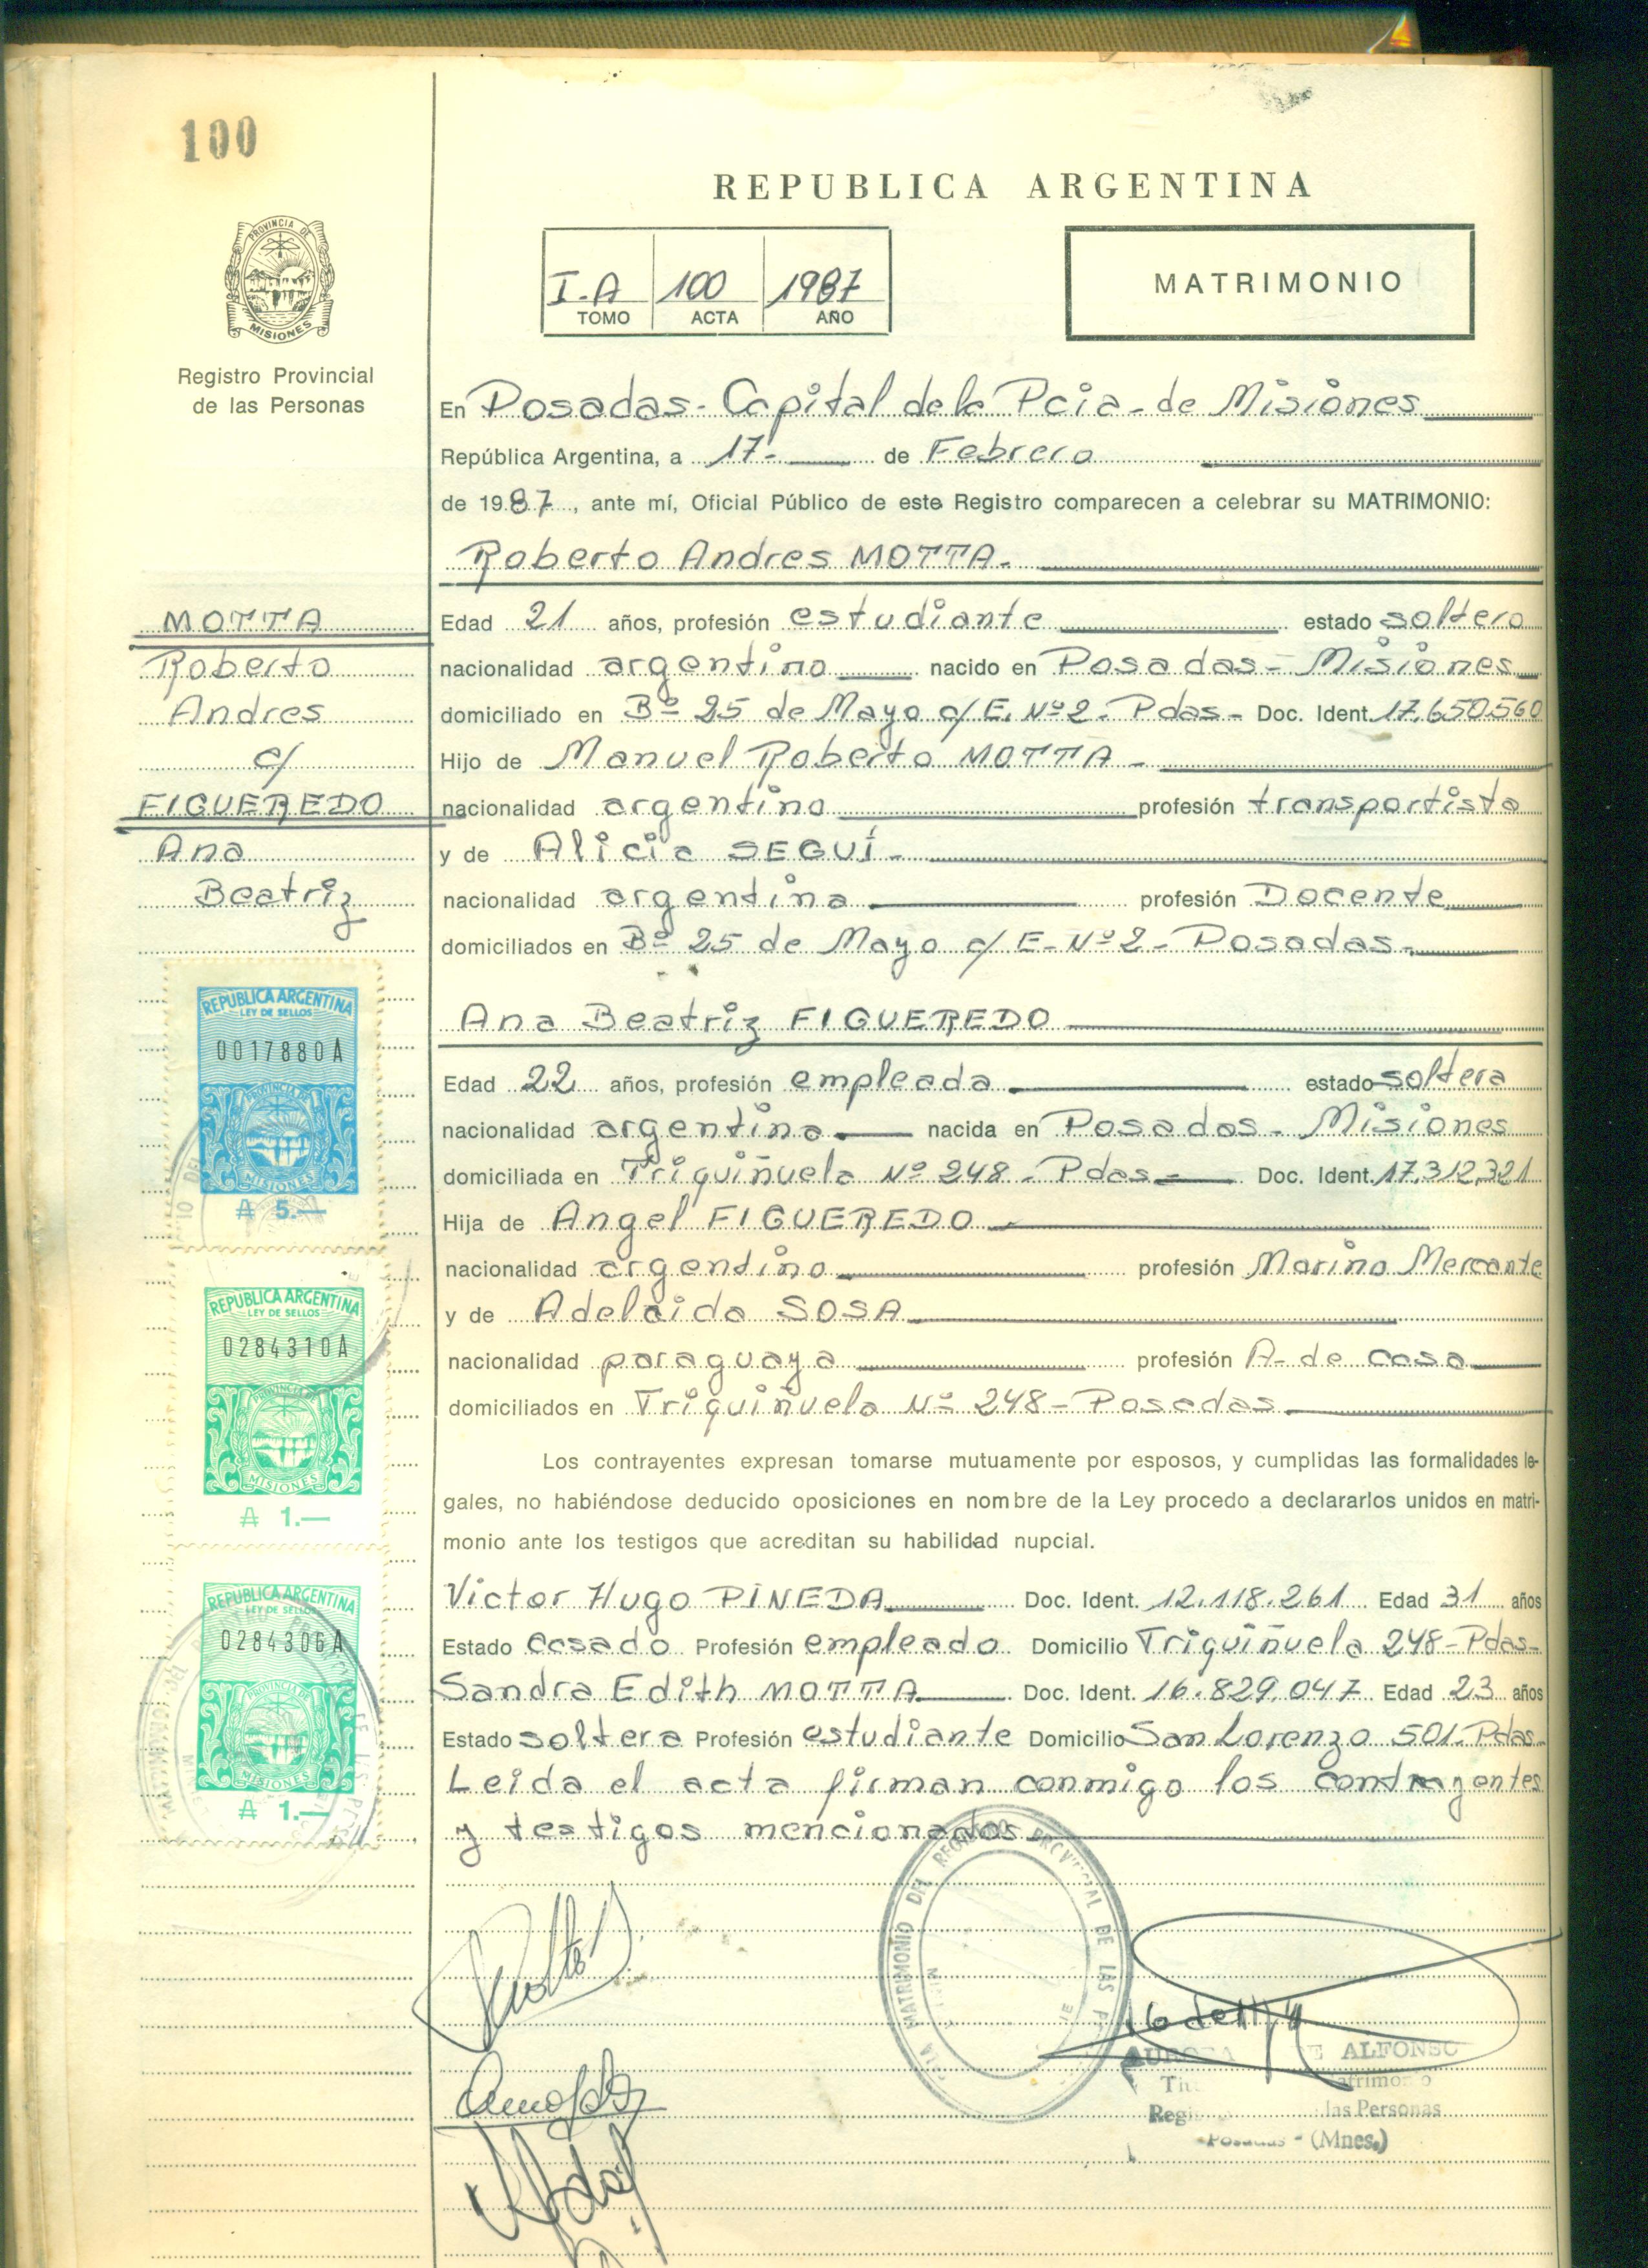 100
PROVINCIA DE
MISIONES
Registro Provincial
de las Personas
REPUBLICA ARGENTINA
I.A 100 1987
TOMO ACTA AÑO
MATRIMONIO
En Posadas - Capital de la Pcia - de Misiones
República Argentina, a 17- de Febrero
de 1987, ante mí, Oficial Público de este Registro comparecen a celebrar su MATRIMONIO:
Roberto Andres MOTTA.
MOTTA
Roberto
Andres
c/
FIGUEREDO
Ana
Beatriz
Edad 21 años, profesión estudiante estado soltero
nacionalidad argentino nacido en Posadas - Misiones
domiciliado en Bº 25 de Mayo c/E. Nº 2. Pdas - Doc. Ident. 17.650560
Hijo de Manuel Roberto MOTTA -
nacionalidad argentino profesión transportista
y de Alicia SEGUÍ -
nacionalidad argentina profesión Docente
domiciliados en Bº 25 de Mayo c/ E - Nº 2 - Posadas.
Ana Beatriz FIGUEREDO
Edad 22 años, profesión empleada estado soltera
nacionalidad argentina nacida en Posadas - Misiones
domiciliada en Triquiñuela Nº 248 - Pdas - Doc. Ident. 17.312,321
Hija de Angel FIGUEREDO
nacionalidad argentino profesión Marino Mercante
y de Adelaida SOSA
nacionalidad paraguaya profesión A- de casa
domiciliados en Triquiñuela Nº 248 - Posadas
Los contrayentes expresan tomarse mutuamente por esposos, y cumplidas las formalidades le-
gales, no habiéndose deducido oposiciones en nombre de la Ley procedo a declararlos unidos en matri-
monio ante los testigos que acreditan su habilidad nupcial.
Victor Hugo PINEDA Doc. Ident. 12.118.261 Edad 31 años
Estado casado Profesión empleado Domicilio Triquiñuela 248 - Pdas -
Sandra Edith MOTTA Doc. Ident. 16.829.047 Edad 23 años
Estado soltera Profesión estudiante Domicilio San Lorenzo 501. Pdas -
Leida el acta firman conmigo los contrayentes
y testigos mencionados
REPUBLICA ARGENTINA
LEY DE SELLOS
0017880A
PROVINCIA DE
MISIONES
₳ 5.—
REPUBLICA ARGENTINA
LEY DE SELLOS
0284310A
PROVINCIA DE
MISIONES
₳ 1.—
REPUBLICA ARGENTINA
LEY DE SELLOS
0284306A
PROVINCIA DE
MISIONES
₳ 1.—
MATRIMONIO DEL REGISTRO PROVINCIAL DE LAS
ALFONSO
las Personas
Posadas - (Mnes.)